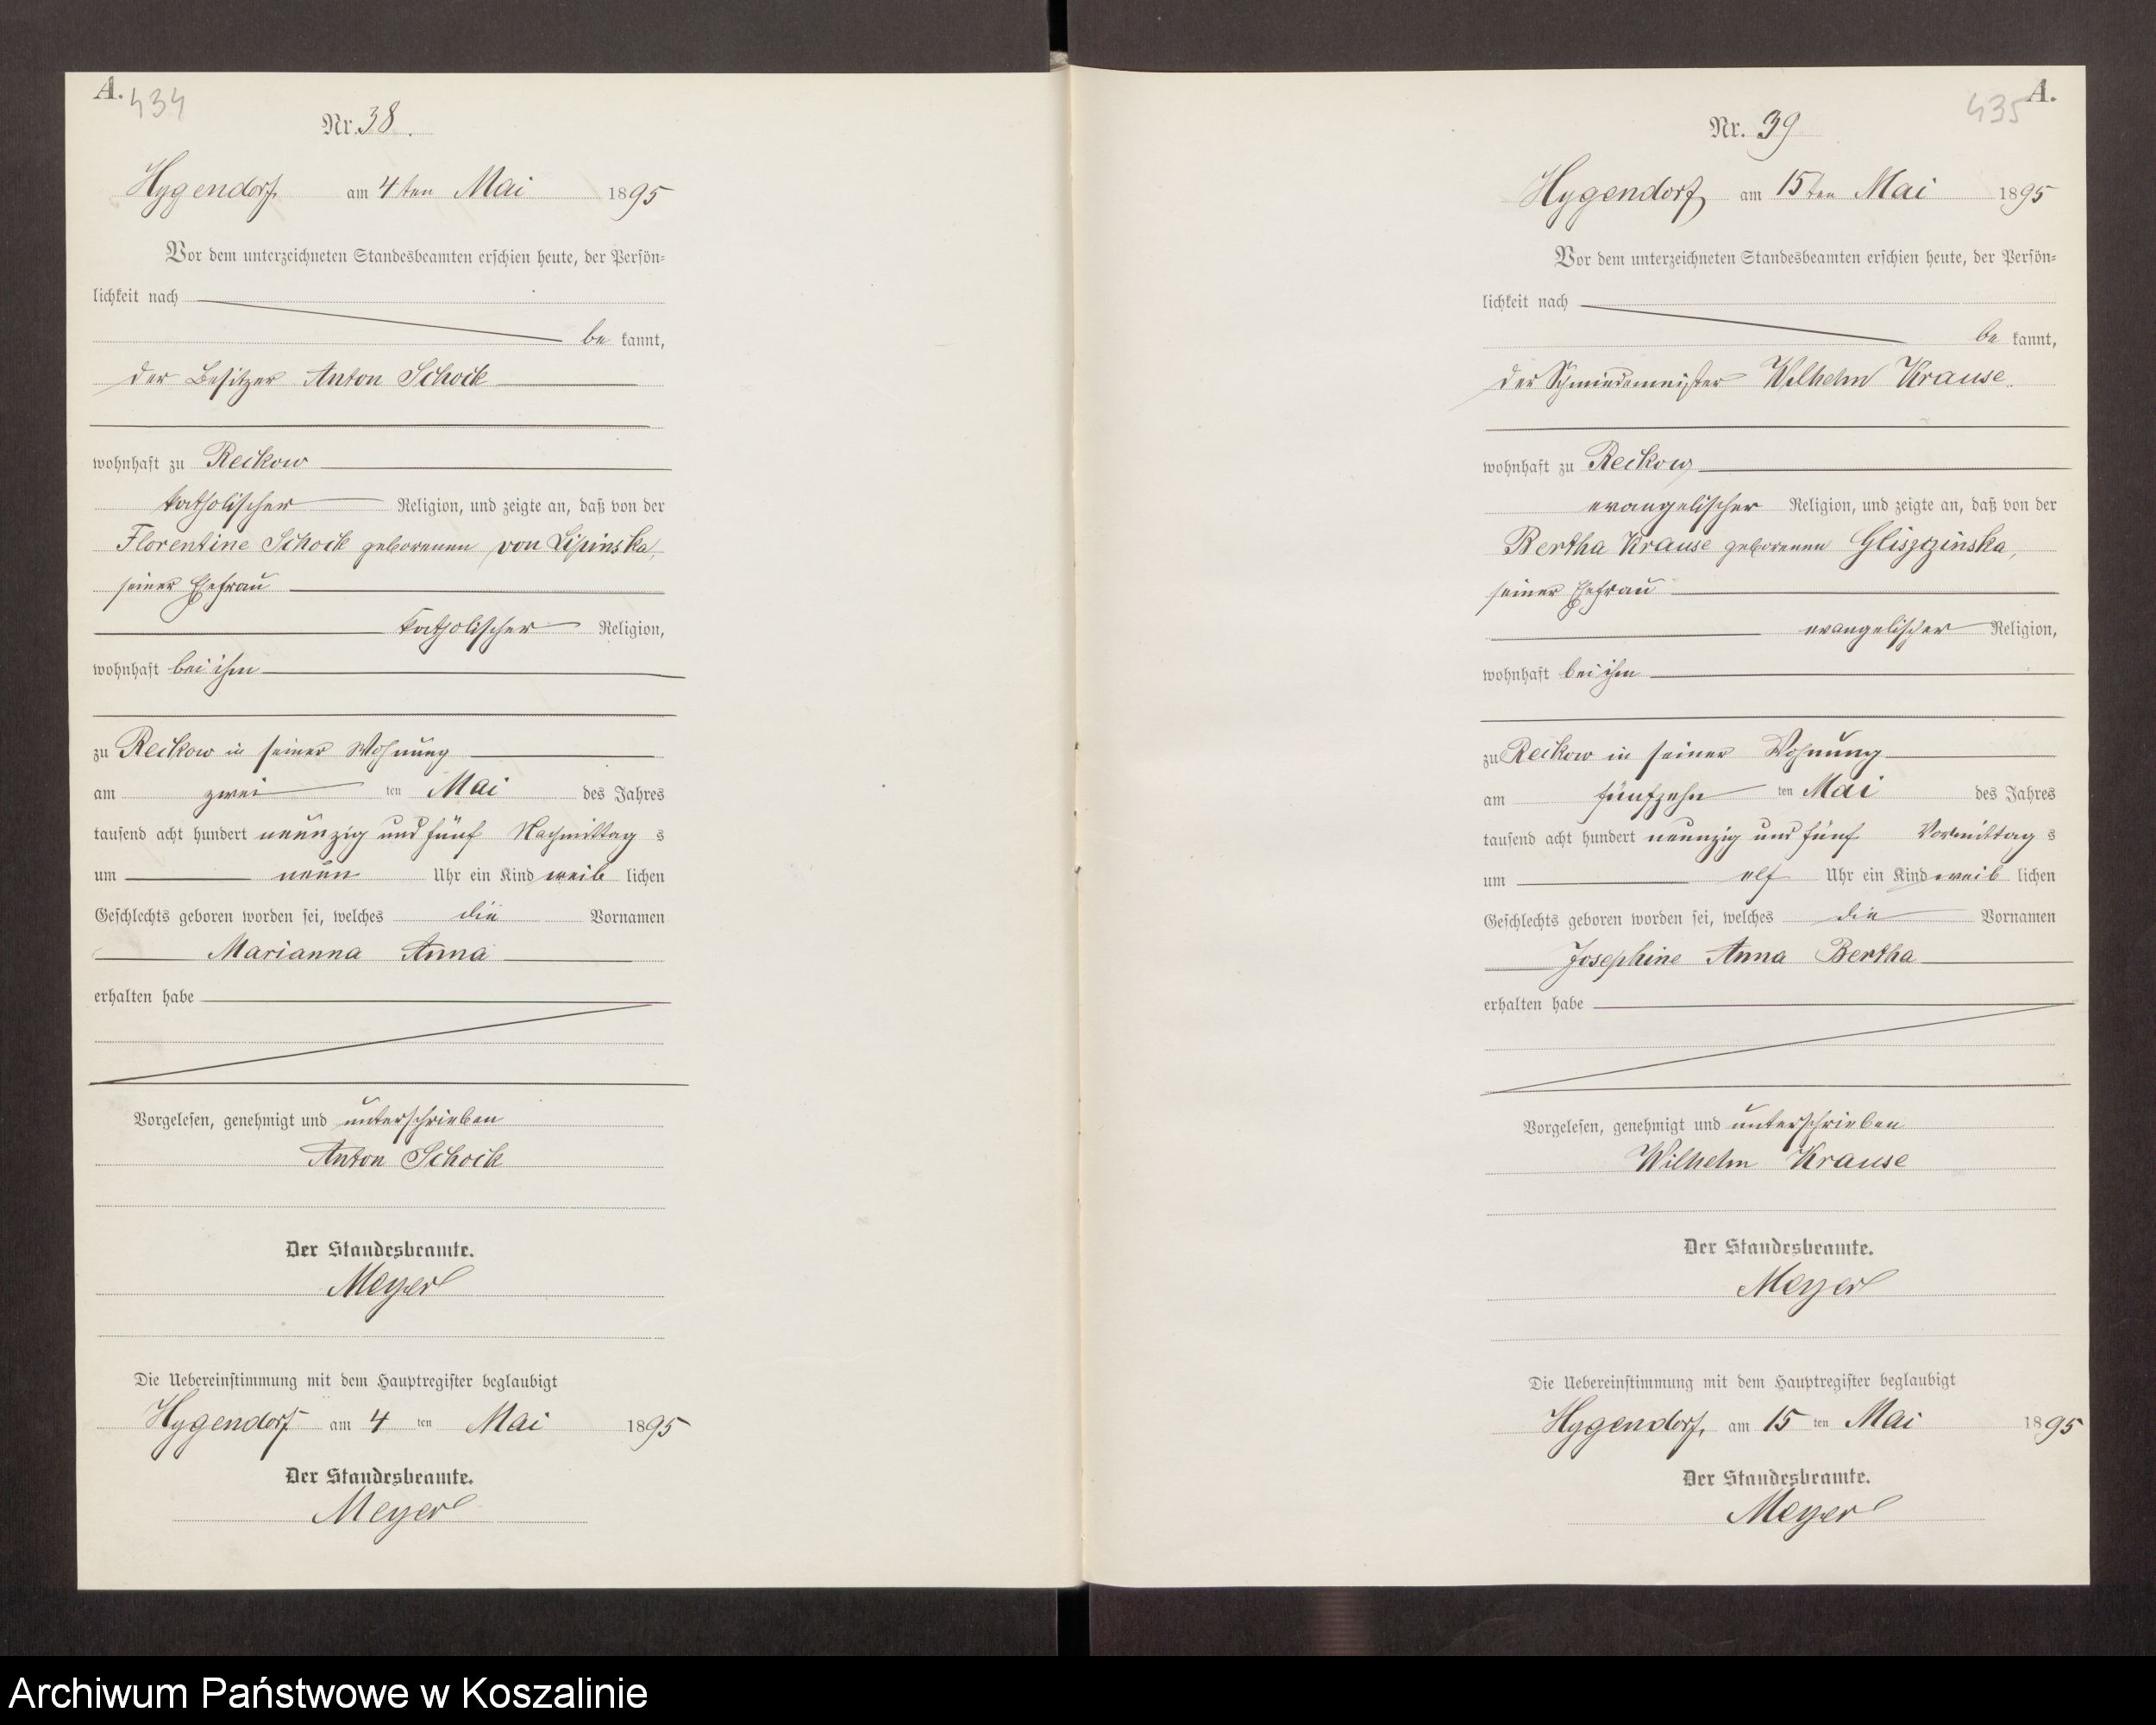 A.
434
Nr. 38.
Hygendorf am 4ten Mai 1895
Vor dem unterzeichneten Standesbeamten erschien heute, der Persön-
lichkeit nach
be kannt,
der Besitzer Anton Schock
wohnhaft zu Reckow
katholischer Religion, und zeigte an, daß von der
Florentine Schock geborenen von Lipinska,
seiner Ehefrau
katholischer Religion,
wohnhaft bei ihm
zu Reckow in seiner Wohnung
am zwei ten Mai des Jahres
tausend acht hundert neunzig und fünf Nachmittag s
um neun Uhr ein Kind weib lichen
Geschlechts geboren worden sei, welches die Vornamen
Marianna Anna
erhalten habe
Vorgelesen, genehmigt und unterschrieben
Anton Schock
Der Standesbeamte.
Meyer
Die Uebereinstimmung mit dem Hauptregister beglaubigt
Hygendorf am 4 ten Mai 1895
Der Standesbeamte.
Meyer
A.
435
Nr. 39
Hygendorf, am 15ten Mai 1895
Vor dem unterzeichneten Standesbeamten erschien heute, der Persön-
lichkeit nach
be kannt,
der Schmiedemeister Wilhelm Krause.
wohnhaft zu Reckow
evangelischer Religion, und zeigte an, daß von der
Bertha Krause geborenen Gliszczinska,
seiner Ehefrau
evangelischer Religion,
wohnhaft bei ihm
zu Reckow in seiner Wohnung
am fünfzehn ten Mai des Jahres
tausend acht hundert neunzig und fünf Vormittag s
um elf Uhr ein Kind weib lichen
Geschlechts geboren worden sei, welches die Vornamen
Josephine Anna Bertha
erhalten habe
Vorgelesen, genehmigt und unterschrieben
Wilhelm Krause
Der Standesbeamte.
Meyer
Die Uebereinstimmung mit dem Hauptregister beglaubigt
Hygendorf, am 15 ten Mai 1895
Der Standesbeamte.
Meyer
Archiwum Państwowe w Koszalinie